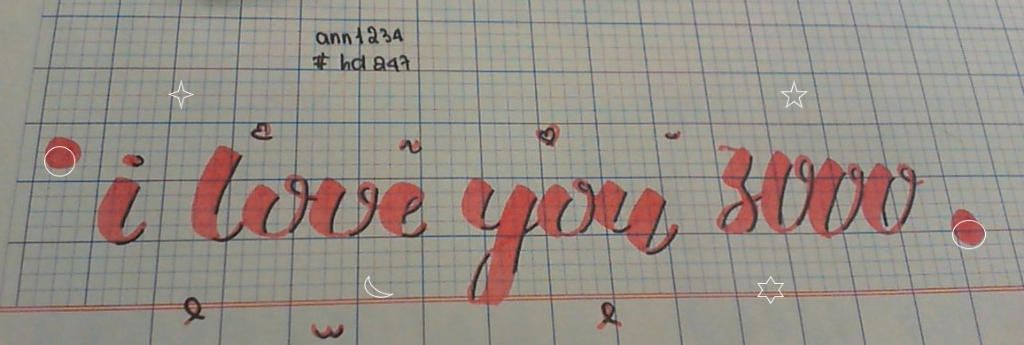 ann1234
# hd 247
i love you 3000